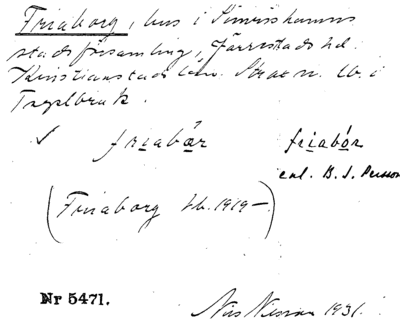 Friaborg, hus i Simrishamns
stadsförsamling, Järrestads hd.
Kristianstads län. Strax n. W. i
Tegelbruk.
✓ friabår friabór
enl. B. J. Persson
(Friaborg Jb. 1919–)
Nr 5471.
Nils Nilsson 1931.